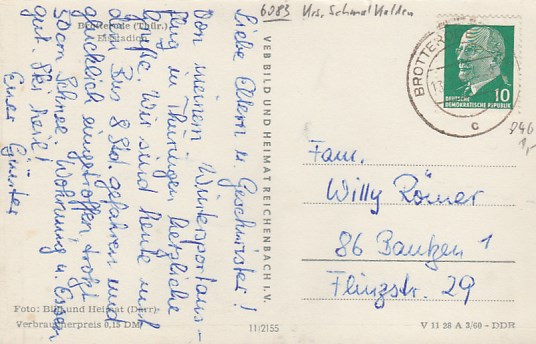 6083 Krs. Schmalkalden
Brotterode (Thür.)
Eisstadion
Liebe Eltern u. Geschwister!
Von meinem Wintersportaus-
flug in Thüringen herzliche
Grüße. Wir sind heute mit
dem Bus 8 Std. gefahren und
glücklich eingetroffen trotz
30 cm Schnee. Wohnung u. Essen
gut. Ski heil!
Euer Günter
Foto: Bild und Heimat (Darr)
Verbraucherpreis 0,15 DM
VEB BILD UND HEIMAT REICHENBACH I. V.
11/2155
BROTTER
c
DEUTSCHE
DEMOKRATISCHE REPUBLIK
10
Fam.
Willy Römer
86 Bautzen 1
Flinzstr. 29
V 11 28 A 3/60 - DDR